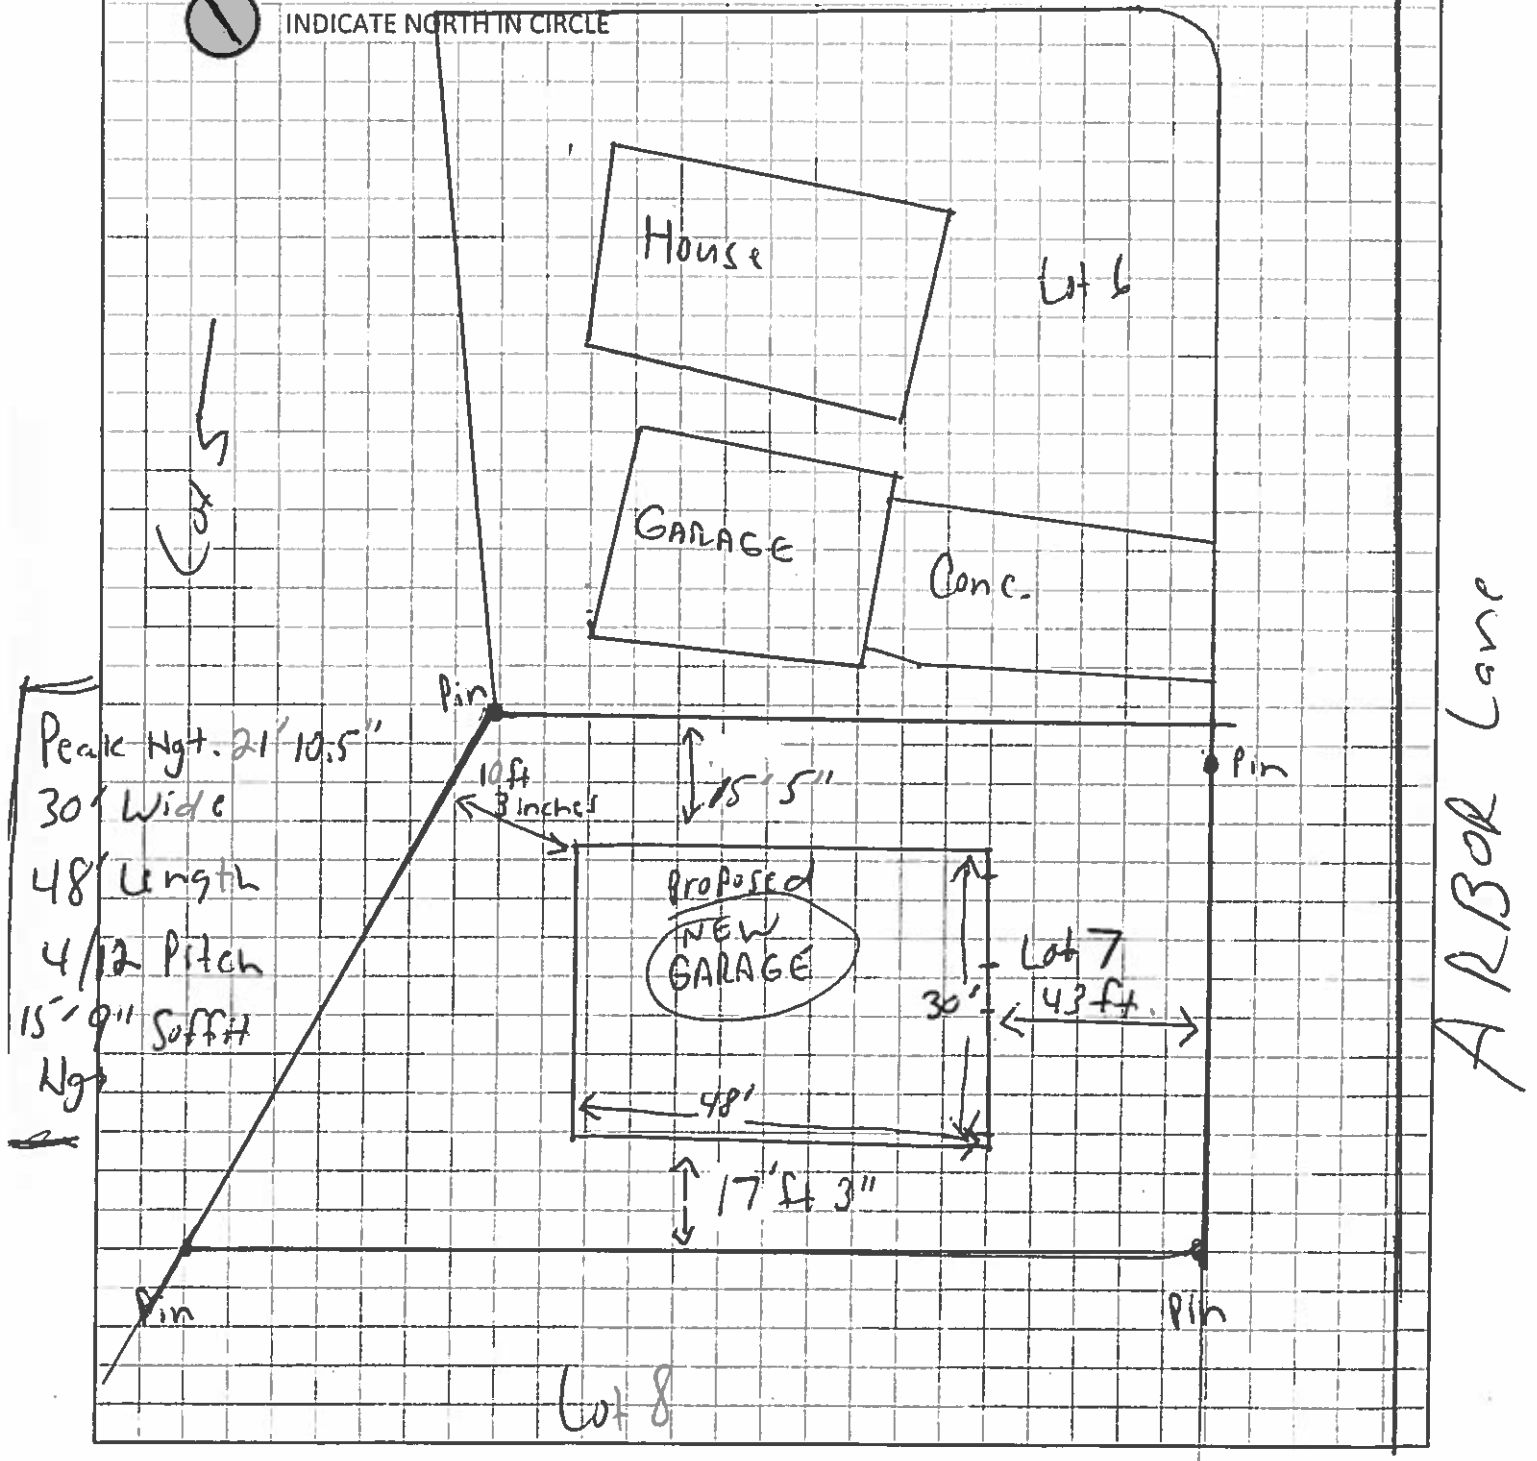 INDICATE NORTH IN CIRCLE
House
Lot 6
Lot 5
GARAGE
Conc.
Pin
Pin
Peak Hgt. 21' 10.5"
30' Wide
48' Length
4/12 Pitch
15' 9" Soffit
Hgt
10ft
3 inches
15' 5"
Proposed
NEW
GARAGE
30'
Lot 7
43 ft.
48'
17' ft 3"
Pin
Pin
Lot 8
ARBOR Lane